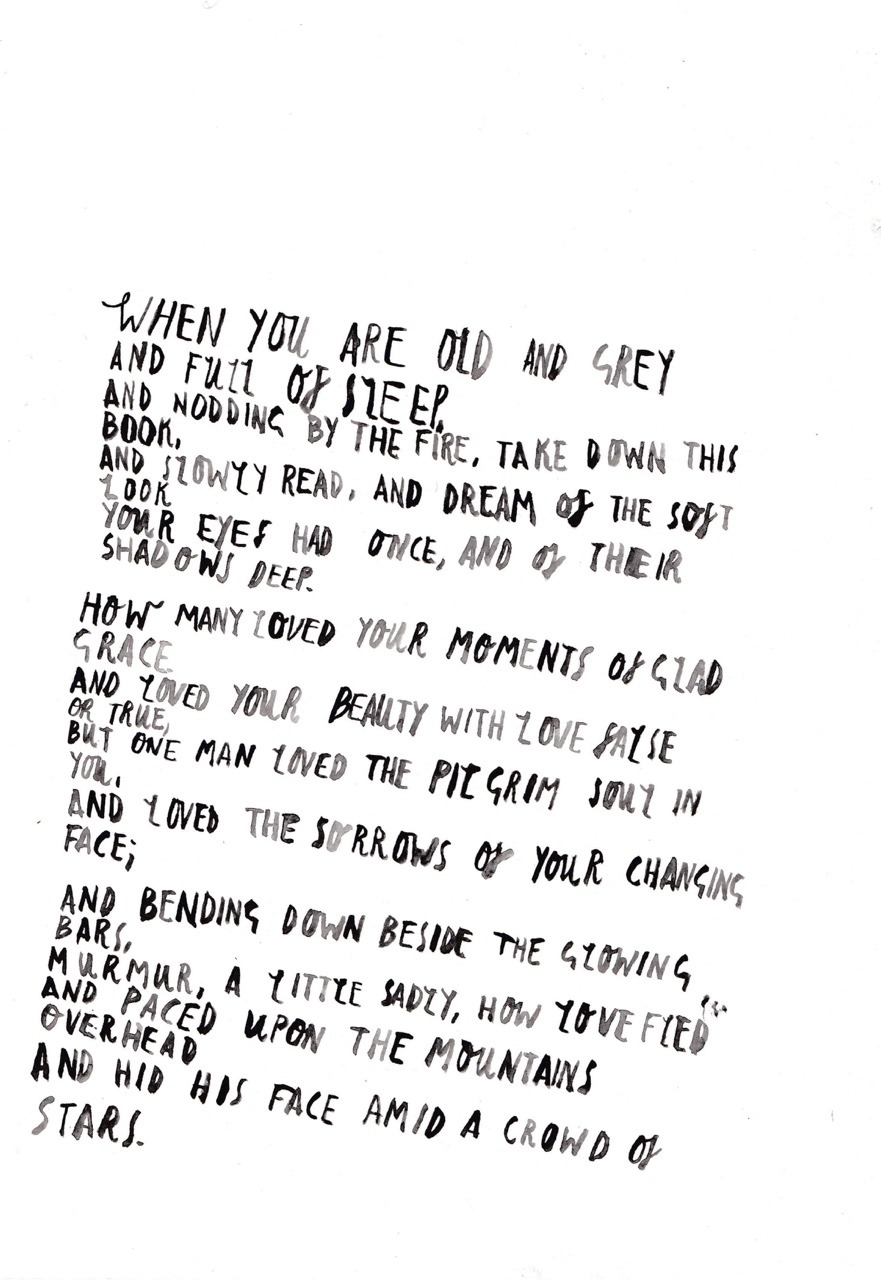 WHEN YOU ARE OLD AND GREY
AND FULL OF SLEEP,
AND NODDING BY THE FIRE, TAKE DOWN THIS
BOOK,
AND SLOWLY READ, AND DREAM OF THE SOFT
LOOK
YOUR EYES HAD ONCE, AND OF THEIR
SHADOWS DEEP.
HOW MANY LOVED YOUR MOMENTS OF GLAD
GRACE
AND LOVED YOUR BEAUTY WITH LOVE FALSE
OR TRUE,
BUT ONE MAN LOVED THE PILGRIM SOUL IN
YOU,
AND LOVED THE SORROWS OF YOUR CHANGING
FACE;
AND BENDING DOWN BESIDE THE GLOWING
BARS,
MURMUR, A LITTLE SADLY, HOW LOVE FLED
AND PACED UPON THE MOUNTAINS
OVERHEAD
AND HID HIS FACE AMID A CROWD OF
STARS.